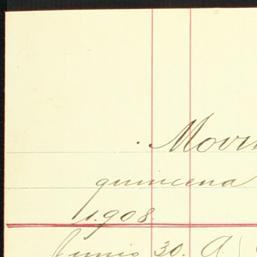 Movi
quincena
1.908.
Junio 30. A.